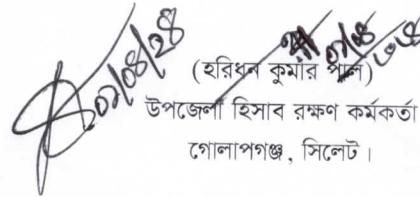 ০১/০৪/২৪
(হরিধন কুমার পাল)
উপজেলা হিসাব রক্ষণ কর্মকর্তা
গোলাপগঞ্জ, সিলেট।